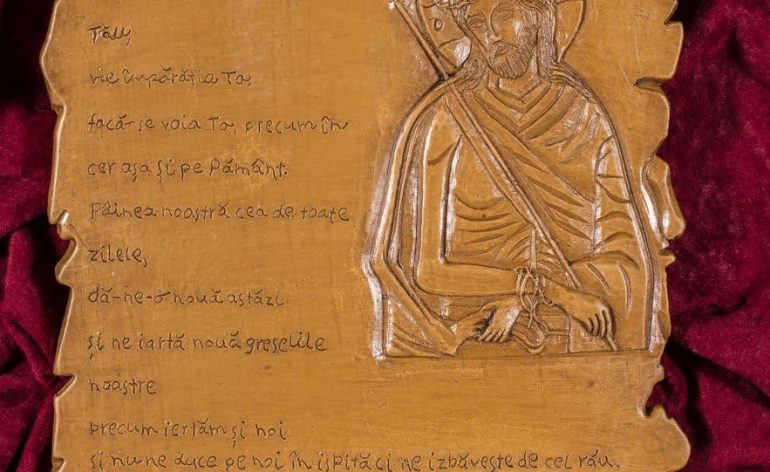 Tău,
vie împărăția Ta,
facă-se voia Ta, precum în
cer așa și pe Pământ.
Pâinea noastră cea de toate
zilele,
dă-ne-o nouă astăzi
și ne iartă nouă greșelile
noastre
precum iertăm și noi
și nu ne duce pe noi în ispită ci ne izbăvește de cel rău.